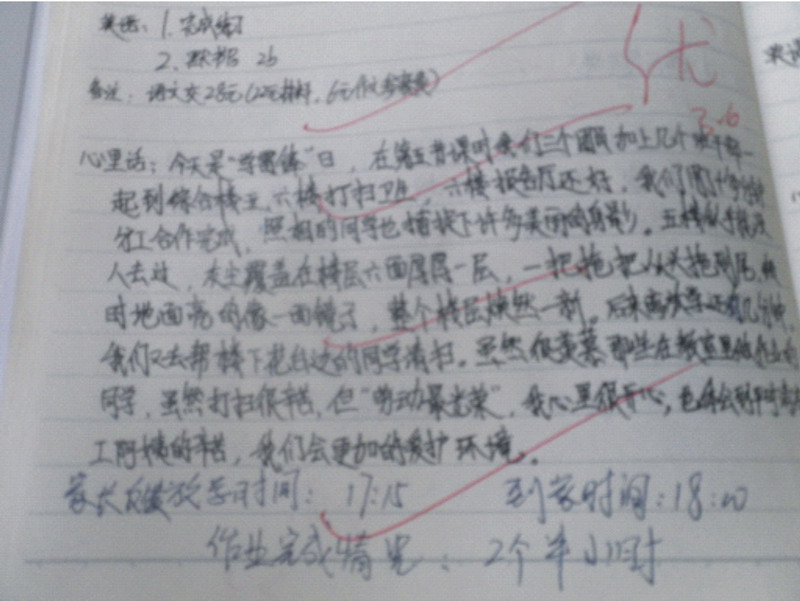 英语：1. 完成练习
2. 26
备注：语文交28元(22元材料，6元作文参赛费)
优
3.6
心里话：今天是“学雷锋”日，在第五节课时我们三个团员加上几个班干部一
起到综合楼五、六楼打扫卫生，六楼报告厅还好，我们
分工合作完成，照相的同学也捕捉下许多美丽的身影。五楼似乎很久
人去过，灰尘覆盖在楼层六面厚厚一层，一把拖把从头拖到尾，
时地面亮的像一面镜子，整个楼层焕然一新。后来离放学还有几分钟，
我们又去帮楼下花台边的同学清扫。虽然很羡慕那些在教室里做作业的
同学，虽然打扫很辛苦，但“劳动最光荣”，我心里很开心，也体会到平时清洁
工阿姨的辛苦，我们会更加的爱护环境。
家长反馈放学时间：17:15 到家时间：18:00
作业完成情况：2个半小时